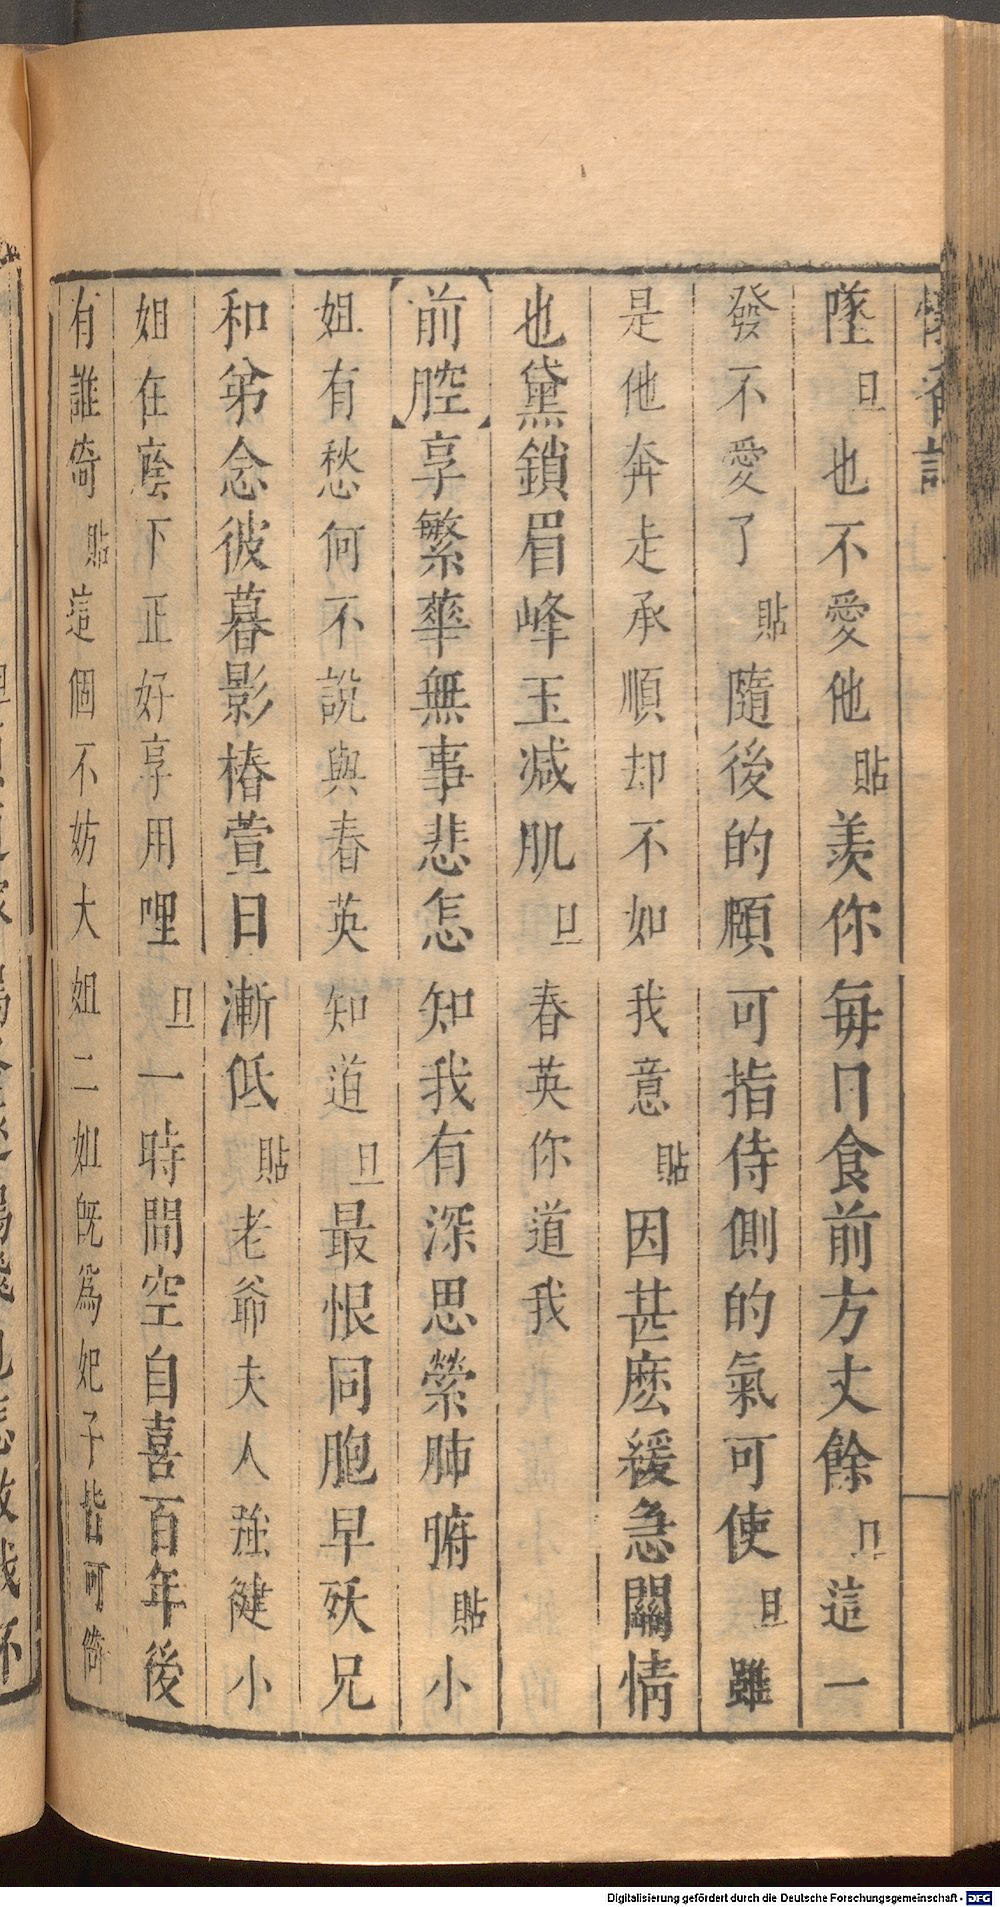 懷香記
墜旦也不愛他貼羨你每日食前方丈餘旦這一
發不愛了貼隨後的頗可指侍側的氣可使旦雖
是他奔走承順却不如我意貼因甚麽緩急關情
也黛鎖眉峰玉减肌旦春英你道我
前腔享繁華無事悲怎知我有深思縈肺腑貼小
姐有愁何不說與春英知道旦最恨同胞早殀兄
和弟念彼暮影椿萱日漸低貼老爺夫人強健小
姐在廕下正好享用哩旦一時間空自喜百年後
有誰倚貼這個不妨大姐二姐旣爲妃子皆可倚
Digitalisierung gefördert durch die Deutsche Forschungsgemeinschaft - DFG